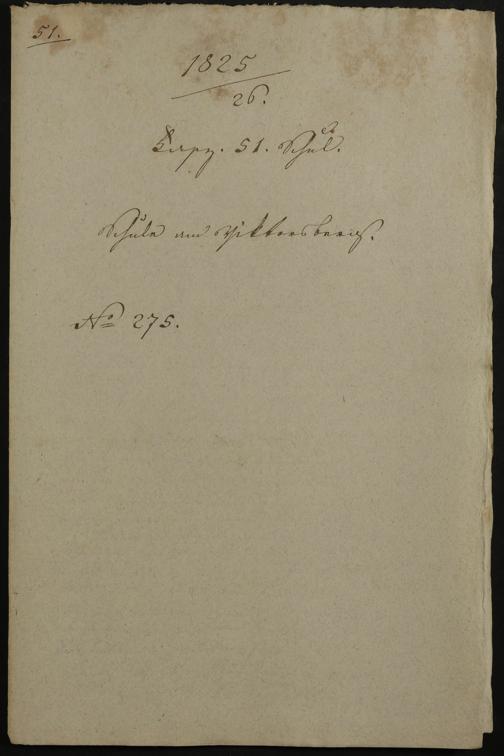 51.
1825
26.
Fasz. 51. Schul.
Schule am Viktorsberg.
No 275.